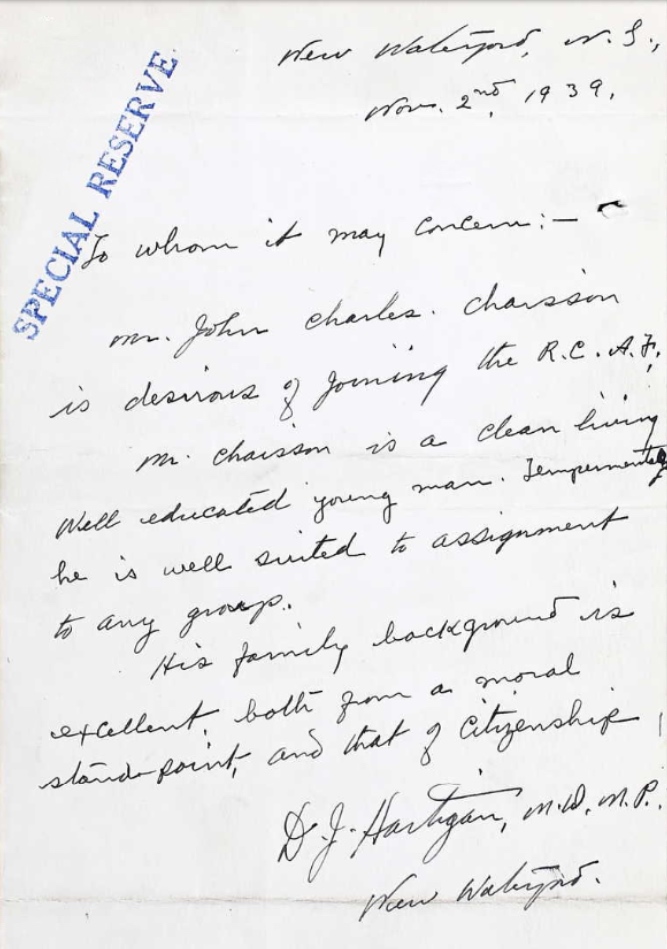 New Waterford, N.S.,
Nov. 2nd, 1939,
SPECIAL RESERVE
To whom it may concern:—
Mr. John Charles. Chaisson
is desirous of joining the R.C.A.F.
Mr. Chaisson is a clean living
Well educated young man. Tempermentaly
he is well suited to assignment
to any group.
His family background is
excellent, both from a moral
stand-point, and that of Citizenship
D. J. Hartigan, M.D., M.P.,
New Waterford.